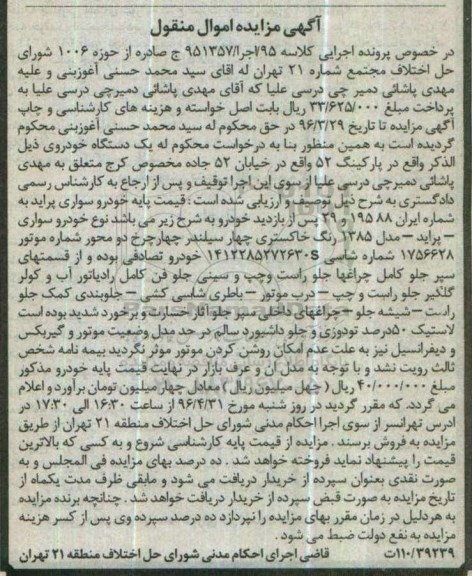 آگهی مزایده اموال منقول
در خصوص پرونده اجرایی کلاسه ۹۵/اجرا/۹۵۱۳۵۷ ج صادره از حوزه ۱۰۰۶ شورای
حل اختلاف مجتمع شماره ۲۱ تهران له اقای سید محمد حسنی آغوزبنی و علیه
مهدی پاشائی دمیر چی درسی علیا که آقای مهدی پاشائی دمیرچی درسی علیا به
پرداخت مبلغ ۳۳/۶۲۵/۰۰۰ ریال بابت اصل خواسته و هزینه های کارشناسی و چاپ
آگهی مزایده تا تاریخ ۹۶/۳/۲۹ در حق محکوم له سید محمد حسنی آغوزبنی محکوم
گردیده است به همین منظور بنا به درخواست محکوم له یک دستگاه خودروی ذیل
الذکر واقع در پارکینگ ۵۲ واقع در خیابان ۵۲ جاده مخصوص کرج متعلق به مهدی
پاشائی دمیرچی درسی علیا از سوی این اجرا توقیف و پس از ارجاع به کارشناس رسمی
دادگستری به شرح ذیل توصیف و ارزیابی شده است : قیمت پایه خودرو سواری پراید به
شماره ایران ۸۸ ۱۹۵ و ۲۹ پس از بازدید خودرو به شرح زیر می باشد نوع خودرو سواری
– پراید – مدل ۱۳۸۵ رنگ خاکستری چهار سیلندر چهارچرخ دو محور شماره موتور
۱۷۵۶۶۲۸ شماره شاسی S۱۴۱۲۲۸۵۲۷۲۶۳۰ خودرو تصادفی بوده و از قسمتهای
سپر جلو کامل چراغها جلو راست وچپ و سینی جلو فن کامل رادیاتور آب و کولر
گلگیر جلو راست و چپ – درب موتور – باطری شاسی کشی – جلوبندی کمک جلو
راست – شیشه جلو – چراغهای داخلی سپر جلو آثار خسارت و برخورد شدید بوده است
لاستیک ۵۰درصد تودوزی و جلو داشبورد سالم در حد مدل وضعیت موتور و گیربکس
و دیفرانسیل نیز به علت عدم امکان روشن کردن موتور موثر نگردید بیمه نامه شخص
ثالث رویت نشد و با توجه به مدل ان و عرف بازار در نهایت قیمت پایه خودرو مذکور
مبلغ ۴۰/۰۰۰/۰۰۰ ریال ( چهل میلیون ریال ) معادل چهار میلیون تومان برآورد و اعلام
می گردد. که مقرر گردید در روز شنبه مورخ ۹۶/۴/۳۱ از ساعت ۱۶:۳۰ الی ۱۷:۳۰ در
ادرس تهرانسر از سوی اجرا احکام مدنی شورای حل اختلاف منطقه ۲۱ تهران از طریق
مزایده به فروش برسند . مزایده از قیمت پایه کارشناسی شروع و به کسی که بالاترین
قیمت را پیشنهاد نماید فروخته خواهد شد . ده درصد بهای مزایده فی المجلس و به
صورت نقدی بعنوان سپرده از خریدار دریافت می شود و مابقی ظرف مدت یکماه از
تاریخ مزایده به صورت قبض سپرده از خریدار دریافت خواهد شد . چنانچه برنده مزایده
به هردلیل در زمان مقرر بهای مزایده را نپردازد ده درصد سپرده وی پس از کسر هزینه
مزایده به نفع دولت ضبط می شود .
۱۱۰/۳۹۲۳۹ت قاضی اجرای احکام مدنی شورای حل اختلاف منطقه ۲۱ تهران